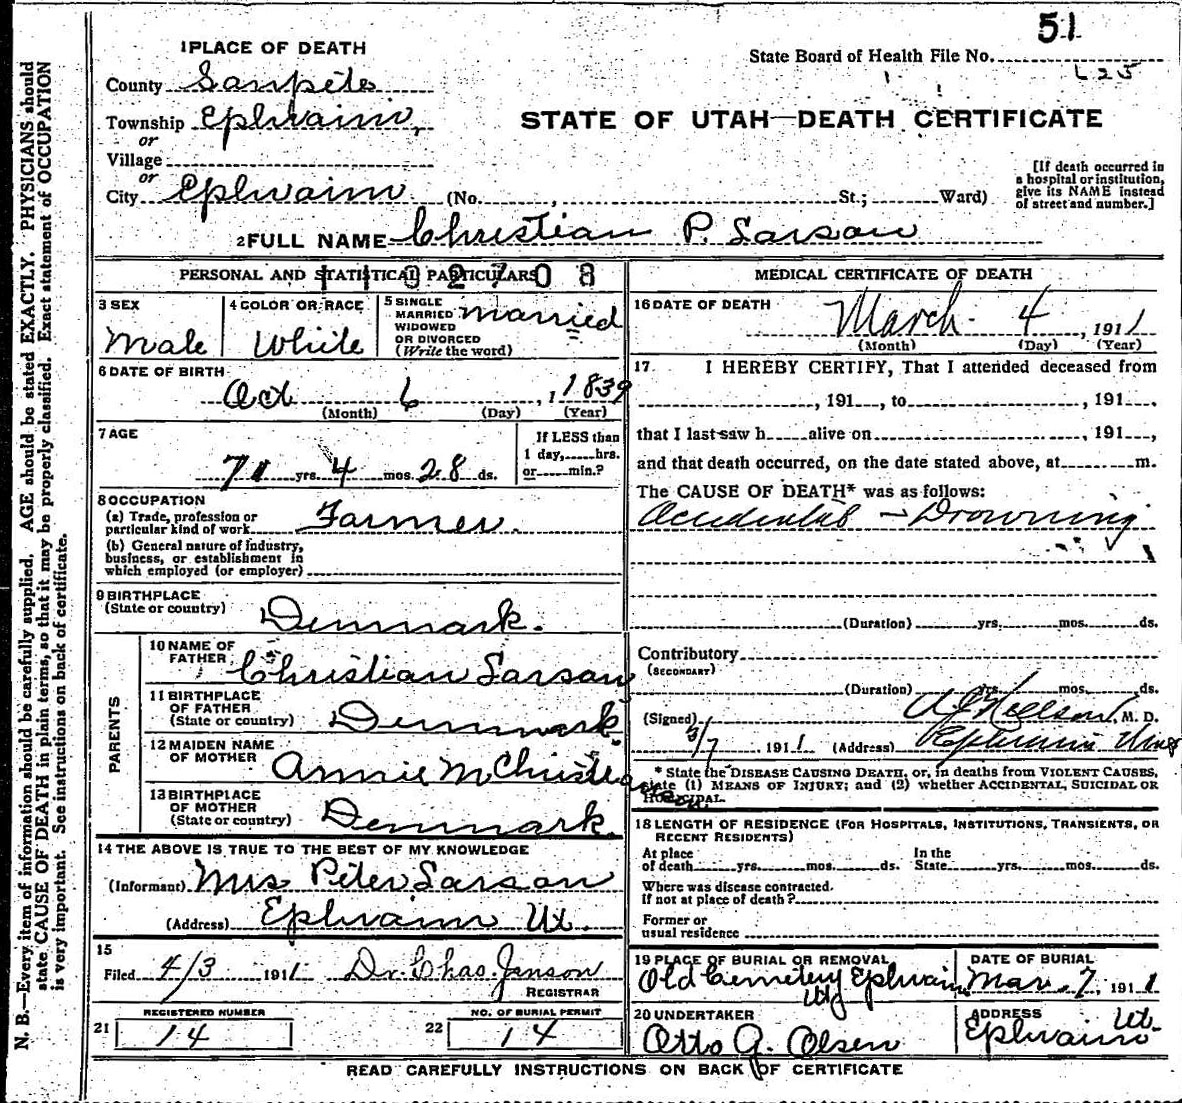 51
1 PLACE OF DEATH
State Board of Health File No.
L 25
County Sanpete
Township Ephraim,
STATE OF UTAH—DEATH CERTIFICATE
or
Village
or
City Ephraim (No. , St.; Ward)
[If death occurred in
a hospital or institution,
give its NAME instead
of street and number.]
2 FULL NAME Christian P. Larson
PERSONAL AND STATISTICAL PARTICULARS
1102708
3 SEX
Male
4 COLOR OR RACE
White
5 SINGLE
MARRIED
WIDOWED
OR DIVORCED
(Write the word)
Married
6 DATE OF BIRTH
Oct 6, 1839
(Month) (Day) (Year)
7 AGE
71 yrs. 4 mos. 28 ds.
If LESS than
1 day, hrs.
or min.?
8 OCCUPATION
(a) Trade, profession or
particular kind of work Farmer.
(b) General nature of industry,
business, or establishment in
which employed (or employer)
9 BIRTHPLACE
(State or country)
Denmark.
PARENTS
10 NAME OF
FATHER
Christian Larson
11 BIRTHPLACE
OF FATHER
(State or country)
Denmark.
12 MAIDEN NAME
OF MOTHER
Annie M Christianson.
13 BIRTHPLACE
OF MOTHER
(State or country)
Denmark.
14 THE ABOVE IS TRUE TO THE BEST OF MY KNOWLEDGE
(Informant) Mrs Peter Larson
(Address) Ephraim Ut.
15
Filed 4/3 1911 Dr. Chas. Janson
REGISTRAR
REGISTERED NUMBER
21 14
NO. OF BURIAL PERMIT
22 14
MEDICAL CERTIFICATE OF DEATH
16 DATE OF DEATH
March 4, 1911
(Month) (Day) (Year)
17 I HEREBY CERTIFY, That I attended deceased from
, 191 , to , 191 ,
that I last saw h alive on , 191 ,
and that death occurred, on the date stated above, at m.
The CAUSE OF DEATH* was as follows:
Accidental — Drowning
(Duration) yrs. mos. ds.
Contributory
(SECONDARY)
(Duration) yrs. mos. ds.
(Signed) M. D.
3/7 1911 (Address) Ephraim Utah
* State the DISEASE CAUSING DEATH, or, in deaths from VIOLENT CAUSES,
state (1) MEANS OF INJURY; and (2) whether ACCIDENTAL, SUICIDAL OR
HOMICIDAL.
18 LENGTH OF RESIDENCE (FOR HOSPITALS, INSTITUTIONS, TRANSIENTS, OR
RECENT RESIDENTS)
At place
of death yrs. mos. ds.
In the
State yrs. mos. ds.
Where was disease contracted.
if not at place of death?
Former or
usual residence
19 PLACE OF BURIAL OR REMOVAL
Old Cemetery Ephraim
Ut
DATE OF BURIAL
Mar. 7, 1911
20 UNDERTAKER
Otto A. Olsen
ADDRESS
Ephraim Ut.
READ CAREFULLY INSTRUCTIONS ON BACK OF CERTIFICATE
N. B.—Every item of information should be carefully supplied. AGE should be stated EXACTLY. PHYSICIANS should
state CAUSE OF DEATH in plain terms, so that it may be properly classified. Exact statement of OCCUPATION
is very important. See instructions on back of certificate.